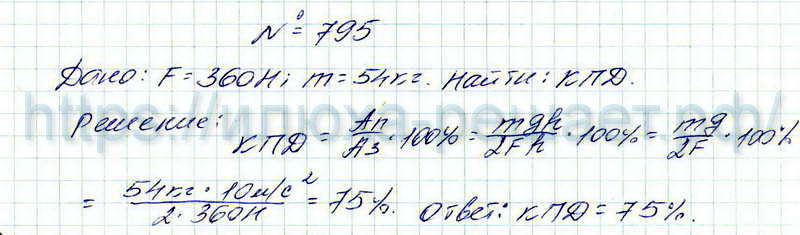 № 795
Дано: F = 360Н; m = 54кг. Найти: КПД.
https://илюха-решает.рф/
Решение: КПД = Ап/Аз · 100% = mgh/2Fh · 100% = mg/2F · 100%
= 54кг · 10м/с²/2 · 360Н = 75%. Ответ: КПД = 75%.